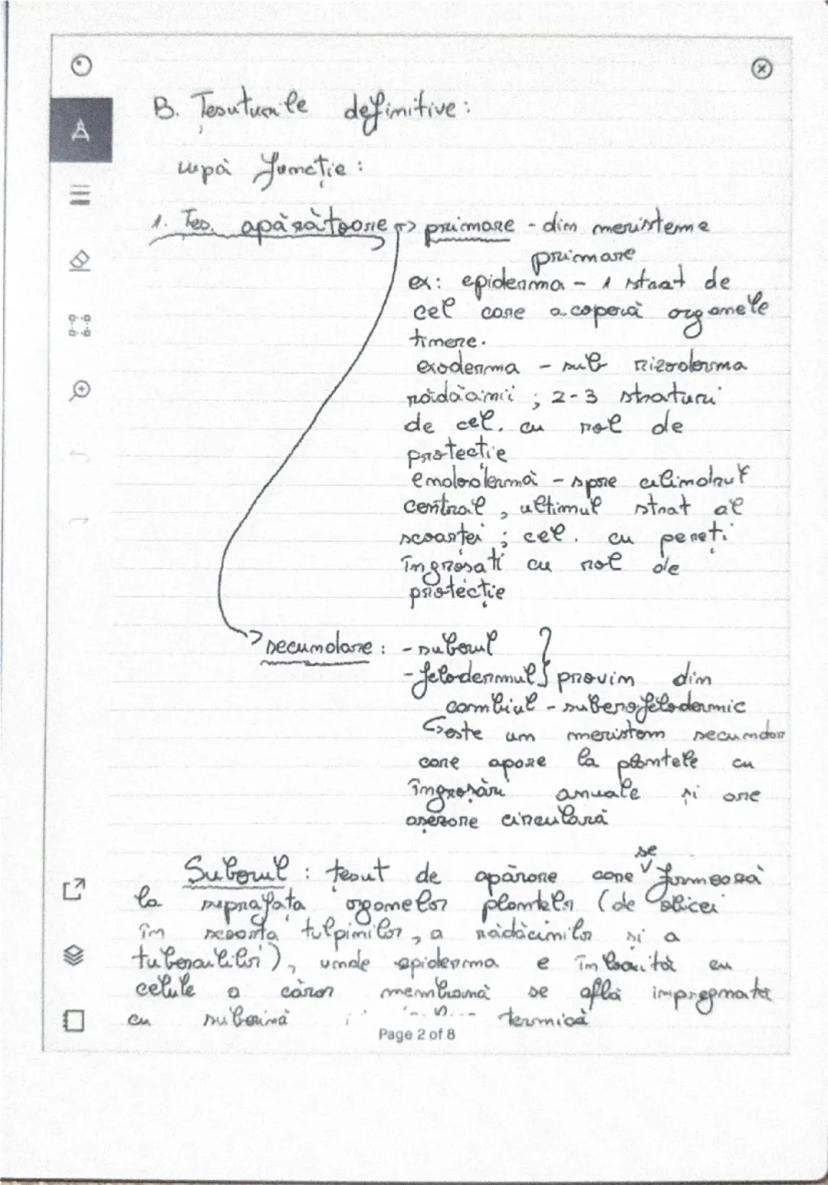 B. Țesuturile definitive:
upă funcție:
1. Țes. apărătoare -> primare - din meristeme
primare
ex: epiderma - 1 strat de
cel care acoperă organele
tinere.
exoderma - sub rizoderma
rădăcinii; 2-3 straturi
de cel. cu rol de
protecție
endodermă - spre cilindrul
central, ultimul strat al
scoarței; cel. cu pereți
îngroșați cu rol de
protecție
-> secundare: - suberul
- felodermul } provin din
cambiul - suberofelodermic
↳ este un meristem secundar
care apare la plantele cu
îngroșări anuale și are
așezare circulară
Suberul: țesut de apărare care se formează
la suprafața organelor plantelor (de obicei
în scoarța tulpinilor, a rădăcinilor și a
tuberculilor), unde epiderma e înlocuită cu
celule a căror membrană se află impregnată
cu suberină termică
Page 2 of 8